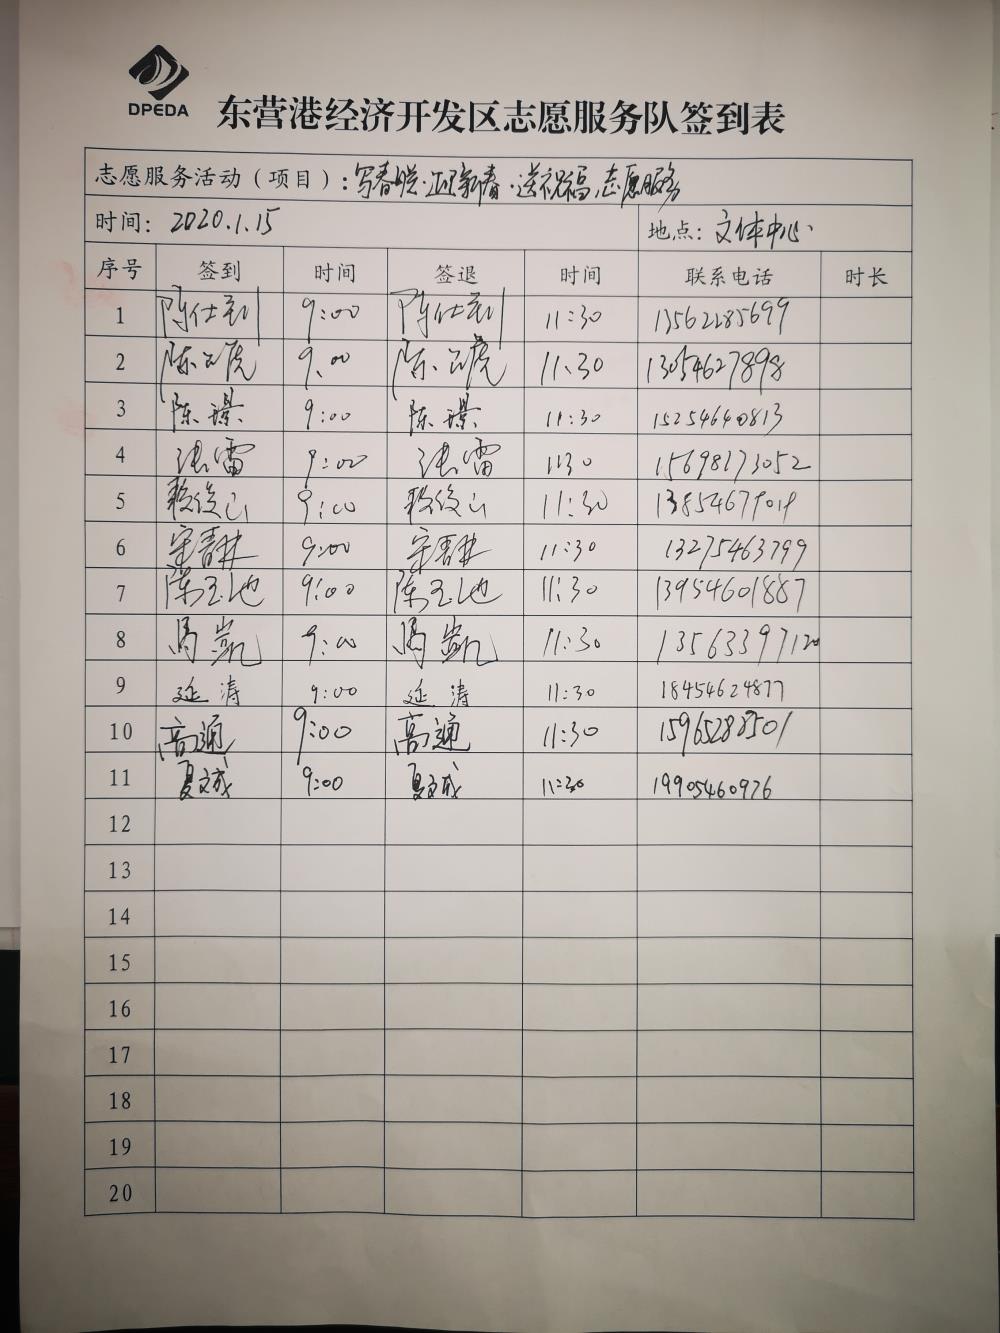 DPEDA
东营港经济开发区志愿服务队签到表
志愿服务活动（项目）：写春联·迎新春·送祝福志愿服务
时间：2020.1.15 地点：文体中心
序号 签到 时间 签退 时间 联系电话 时长
1 陈仕利 9:00 陈仕利 11:30 13562285699
2 陈 虎 9.00 陈 虎 11.30 13054627898
3 陈璟 9:00 陈璟 11:30 15254640813
4 张雷 9:00 张雷 1130 15698173052
5 9:00 11:30
6 宋春林 9:00 宋春林 11:30 13275463799
7 陈玉池 9:00 陈玉池 11:30 13954601887
8 马凯 9:00 马凯 11:30 13563397120
9 延涛 9:00 延涛 11:30 18454624877
10 高通 9:00 高通 11:30 15965288501
11 夏文成 9:00 夏文成 11:30 19905460926
12
13
14
15
16
17
18
19
20